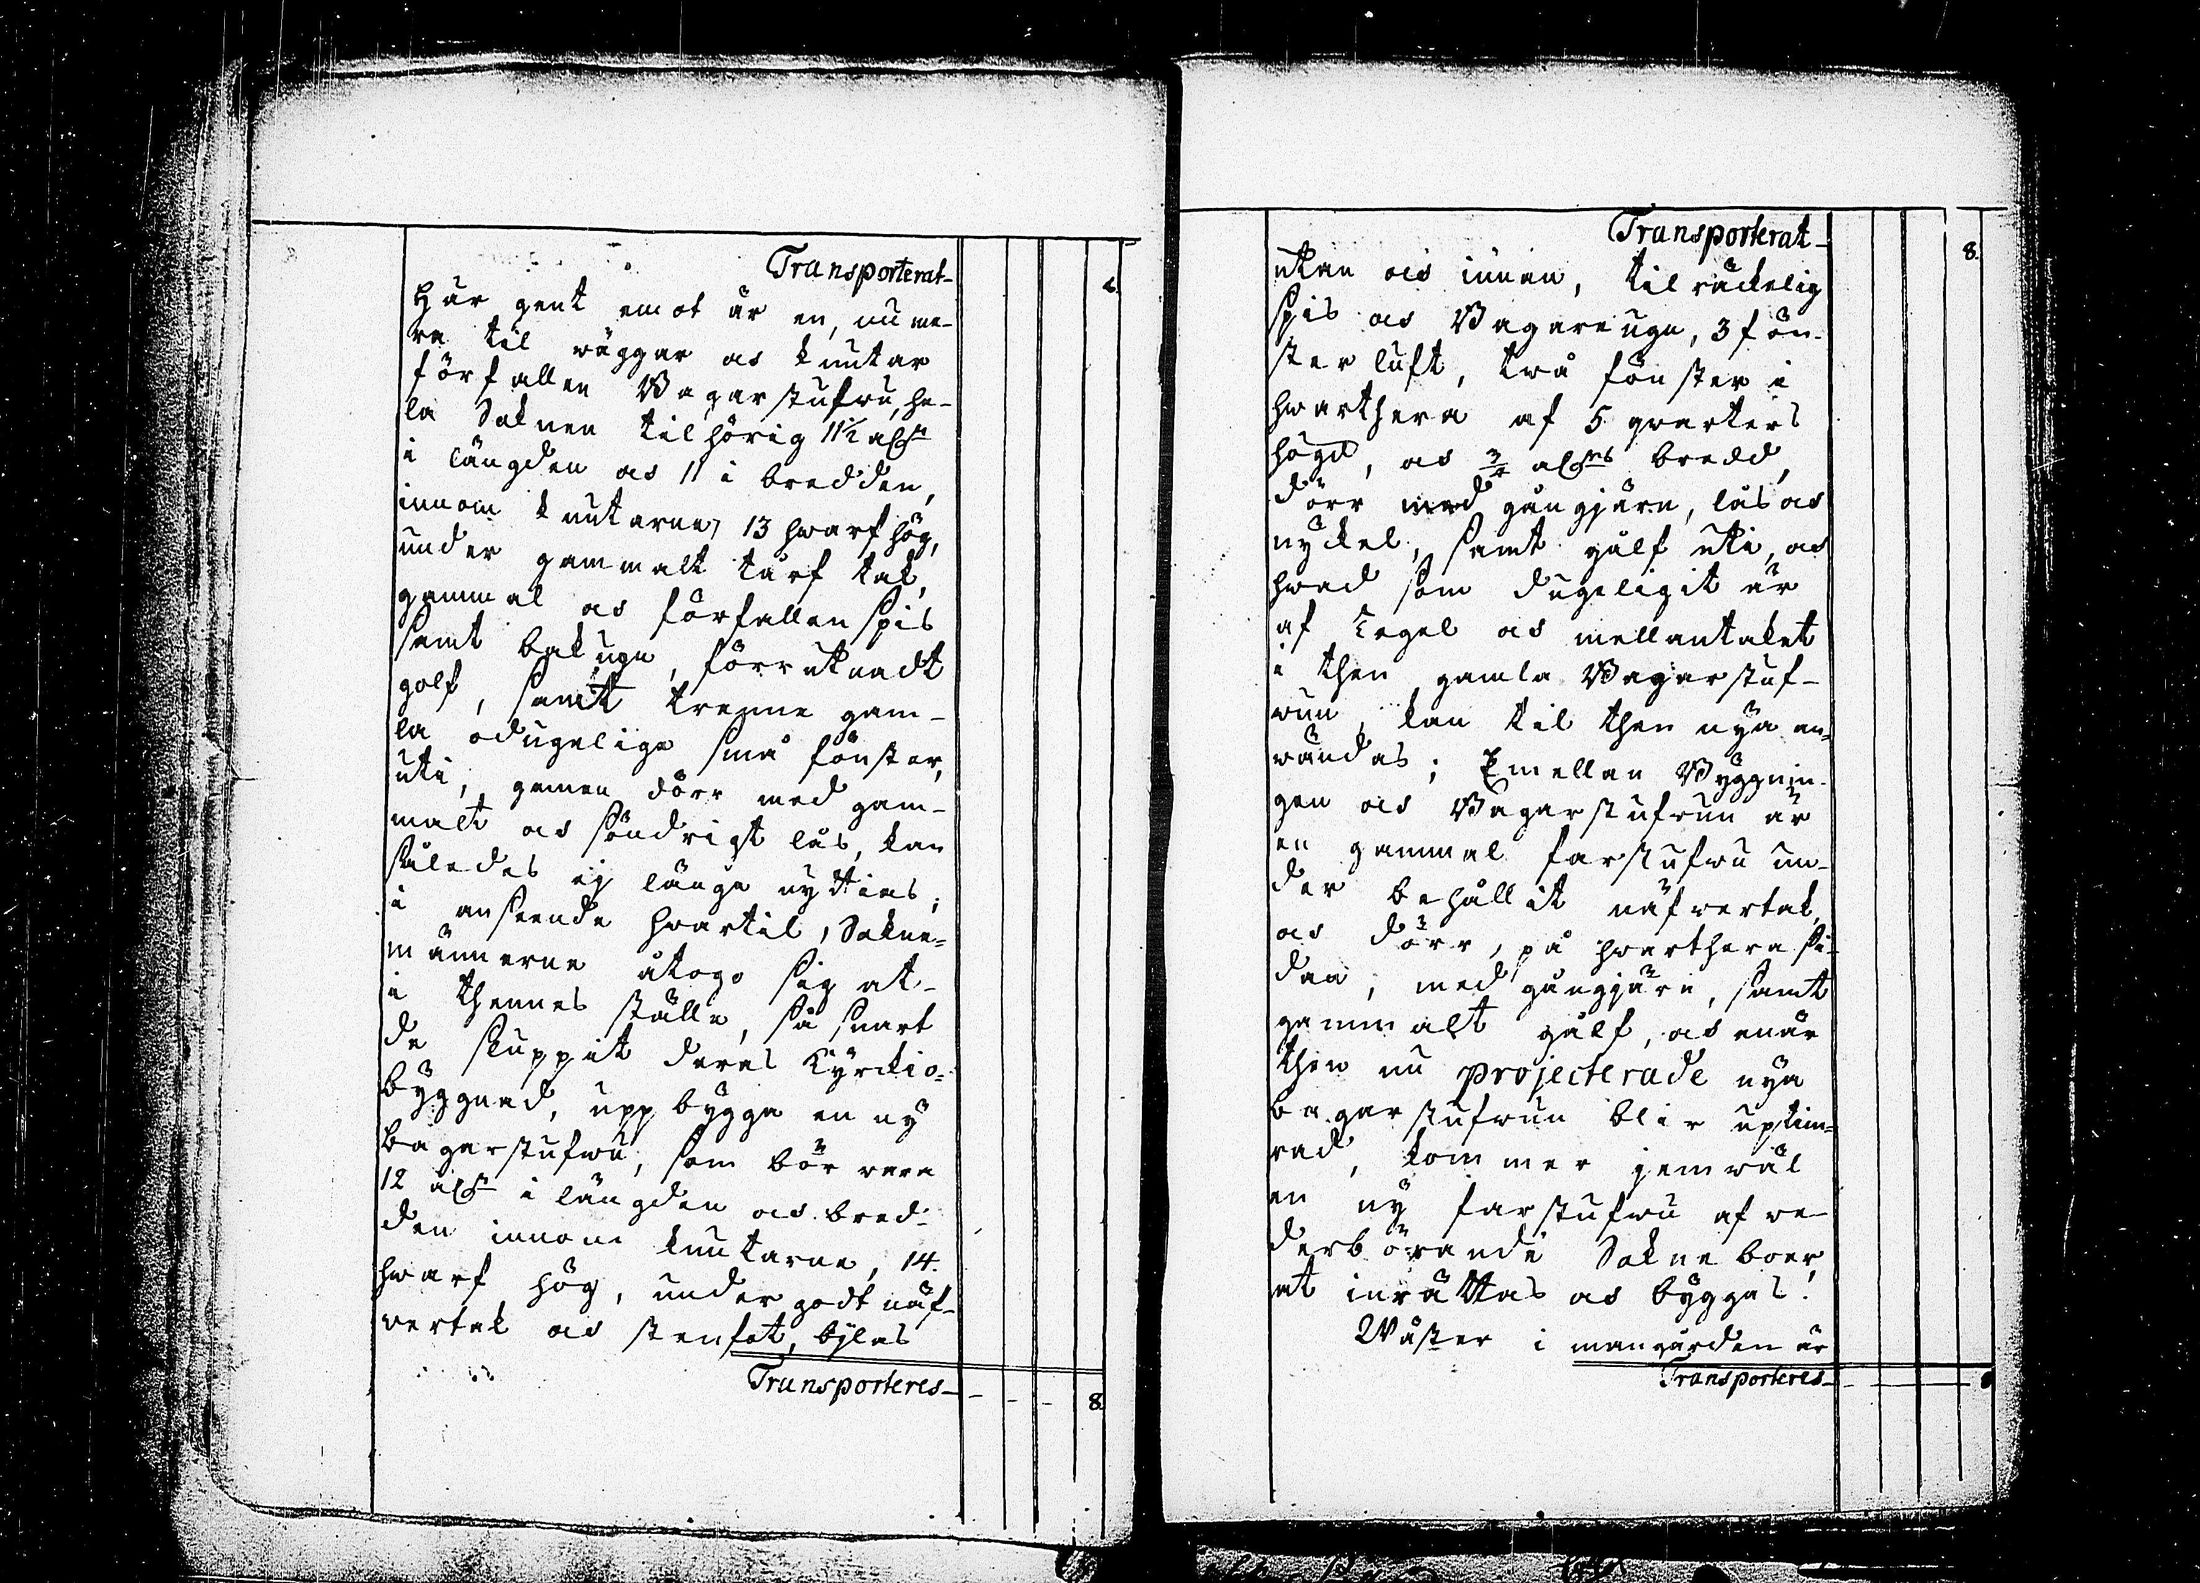 Transporterat 6.
Här gent emot är en, nu me-
ra til wäggar och knutar
förfallen Bagarstufwu, he-
la Soknen tilhörig 11 1/2 aln:r
i längden och 11 i bredden,
innom knutarne, 13 hwarf hög,
under gammalt tårf tak,
gammal och förfallen spis
samt bakugn, förruknadt
golf, samt trenne gam-
la odugelige små fönster,
uti, gemen dörr med gam-
malt och söndrigt lås, kan
således ej länge nyttias;
i anseende hwartil, Sokne-
männerne åtogo sig at
i thennes ställe, så snart
de sluppit deras Kyrkio-
byggnad, uppbygga en ny
bagarstufwu, som bör vara
12 aln:r i längden och bred-
den innom knutarne, 14.
hwarf hög, under godt näf-
vertak och stenfot, bylas
Transporteres - - - 8.
Transporterat 8.
utan och innan, tilräckelig
spis och Bagareugn, 3 fön-
ster luft, twå fönster i
hwarthera af 5 qvarters
högd, och 3/4 aln:rs bredd,
dörr med gångjärn, lås och
nyckel, samt gålf uti, och
hwad som dugeligit är
af Tegel och mellantaket
i then gamla Bagarstuf-
wun, kan til then nya an-
wändas; Emellan Byggnin-
gen och Bagarstufwun är
en gammal farstufwu un-
der behållit näfwertak,
och dörr, på hwarthera si-
dan, med gångjärn, samt
gammalt gålf, och enär
then nu projecterade nya
bagarstufwun blir uptim-
rad, kommer jemwäl
en ny farstufwu af we-
derbörande Sokneboer
at inrättas och byggas.
Wäster i mangården är
Transporteres - 8